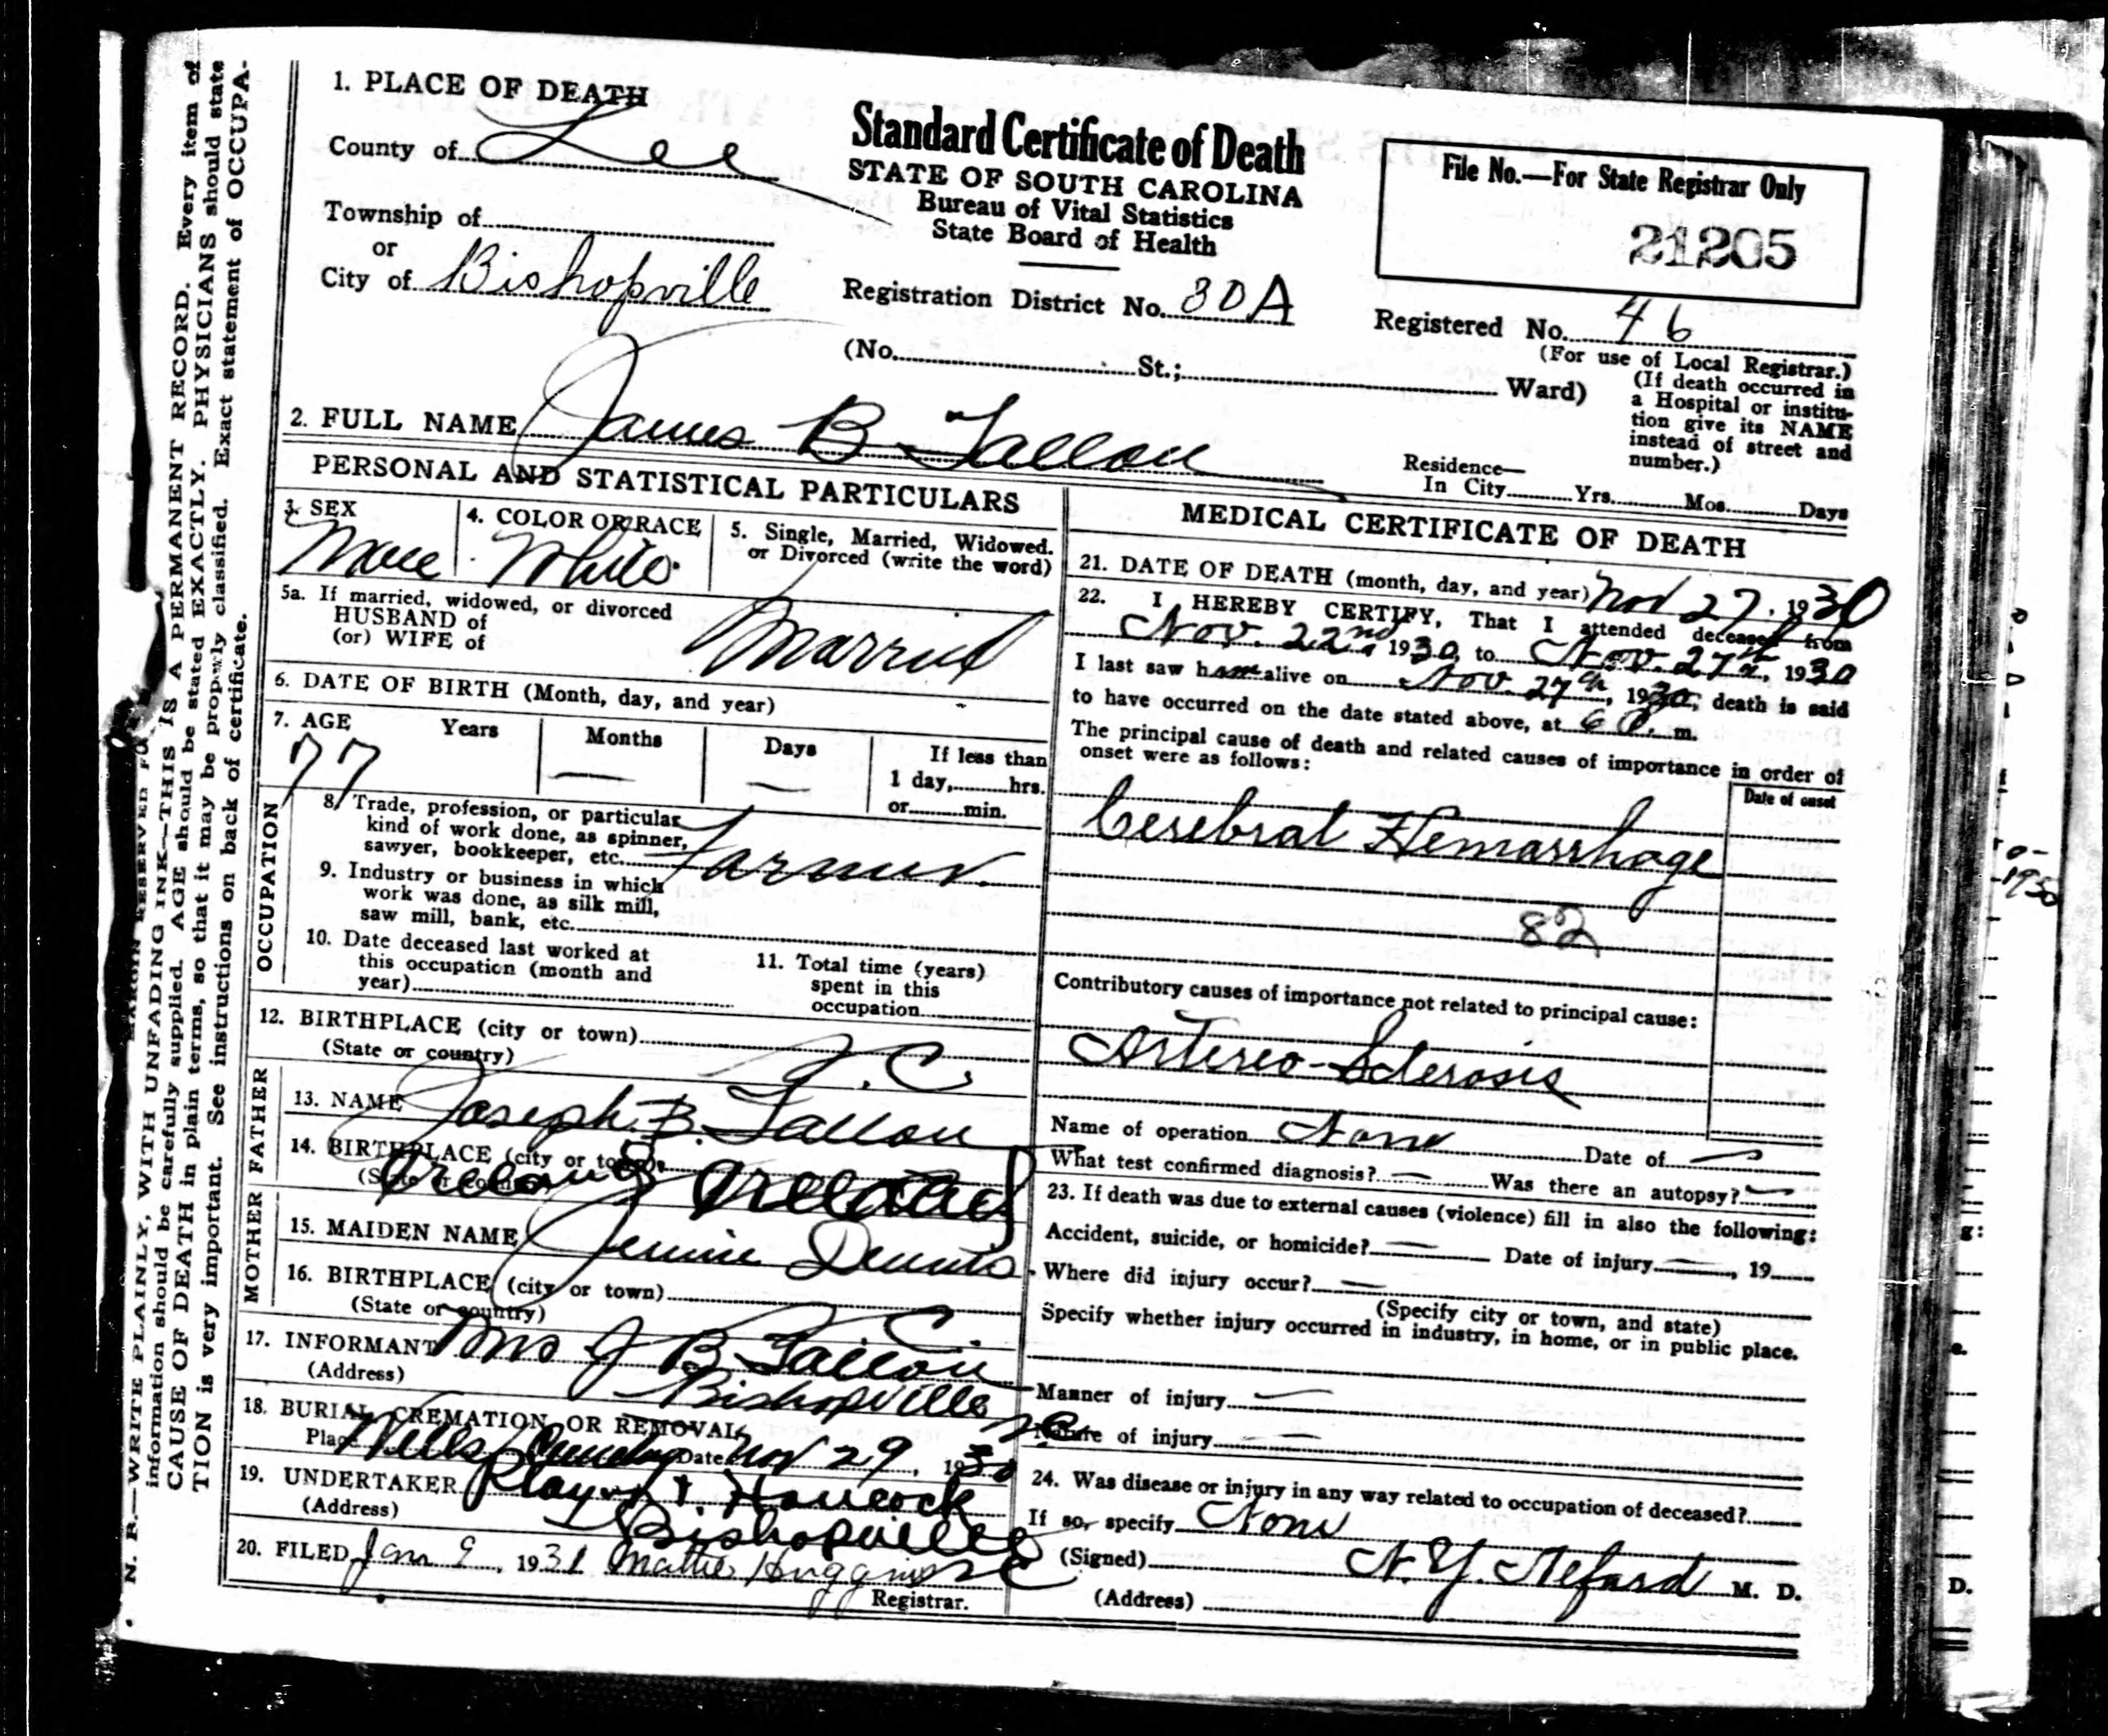 1. PLACE OF DEATH
County of Lee
Township of
or
City of Bishopville
Standard Certificate of Death
STATE OF SOUTH CAROLINA
Bureau of Vital Statistics
State Board of Health
File No.—For State Registrar Only
21205
Registration District No. 30A
Registered No. 46
(For use of Local Registrar.)
(No. St.; Ward)
(If death occurred in
a Hospital or institu-
tion give its NAME
instead of street and
number.)
2. FULL NAME James B Fallon
Residence—
In City Yrs. Mos. Days
PERSONAL AND STATISTICAL PARTICULARS
3. SEX
Male
4. COLOR OR RACE
White
5. Single, Married, Widowed.
or Divorced (write the word)
Married
5a. If married, widowed, or divorced
HUSBAND of
(or) WIFE of
6. DATE OF BIRTH (Month, day, and year)
7. AGE Years Months Days If less than
77 — — 1 day, hrs.
or min.
OCCUPATION
8. Trade, profession, or particular
kind of work done, as spinner,
sawyer, bookkeeper, etc. Farmer
9. Industry or business in which
work was done, as silk mill,
saw mill, bank, etc.
10. Date deceased last worked at
this occupation (month and
year)
11. Total time (years)
spent in this
occupation
12. BIRTHPLACE (city or town)
(State or country) S.C.
FATHER
13. NAME Joseph B. Fallon
14. BIRTHPLACE (city or town)
Ireland Ireland
MOTHER
15. MAIDEN NAME Jennie Dennis
16. BIRTHPLACE (city or town)
(State or country) S.C.
17. INFORMANT Mrs J B Fallon
(Address) Bishopville SC
18. BURIAL, CREMATION, OR REMOVAL
Place Wells Date Nov 29, 1930
19. UNDERTAKER Player & Hancock
(Address) Bishopville SC
20. FILED Jan 9, 1931 Mattie Huggins
Registrar.
MEDICAL CERTIFICATE OF DEATH
21. DATE OF DEATH (month, day, and year) Nov 27, 1930
22. I HEREBY CERTIFY, That I attended deceased from
Nov. 22nd, 1930, to Nov. 27th, 1930
I last saw him alive on Nov. 27th, 1930, death is said
to have occurred on the date stated above, at 6 P. m.
The principal cause of death and related causes of importance in order of
onset were as follows:
Date of onset
Cerebral Hemarrhage
82
Contributory causes of importance not related to principal cause:
Arterio-Sclerosis
Name of operation None Date of —
What test confirmed diagnosis? — Was there an autopsy? —
23. If death was due to external causes (violence) fill in also the following:
Accident, suicide, or homicide? — Date of injury —, 19
Where did injury occur? —
(Specify city or town, and state)
Specify whether injury occurred in industry, in home, or in public place.
Manner of injury —
Nature of injury —
24. Was disease or injury in any way related to occupation of deceased?
If so, specify None
(Signed) M. D.
(Address)
N. B.—WRITE PLAINLY, WITH UNFADING INK—THIS IS A PERMANENT RECORD. Every item of
information should be carefully supplied. AGE should be stated EXACTLY. PHYSICIANS should state
CAUSE OF DEATH in plain terms, so that it may be properly classified. Exact statement of OCCUPA-
TION is very important. See instructions on back of certificate.